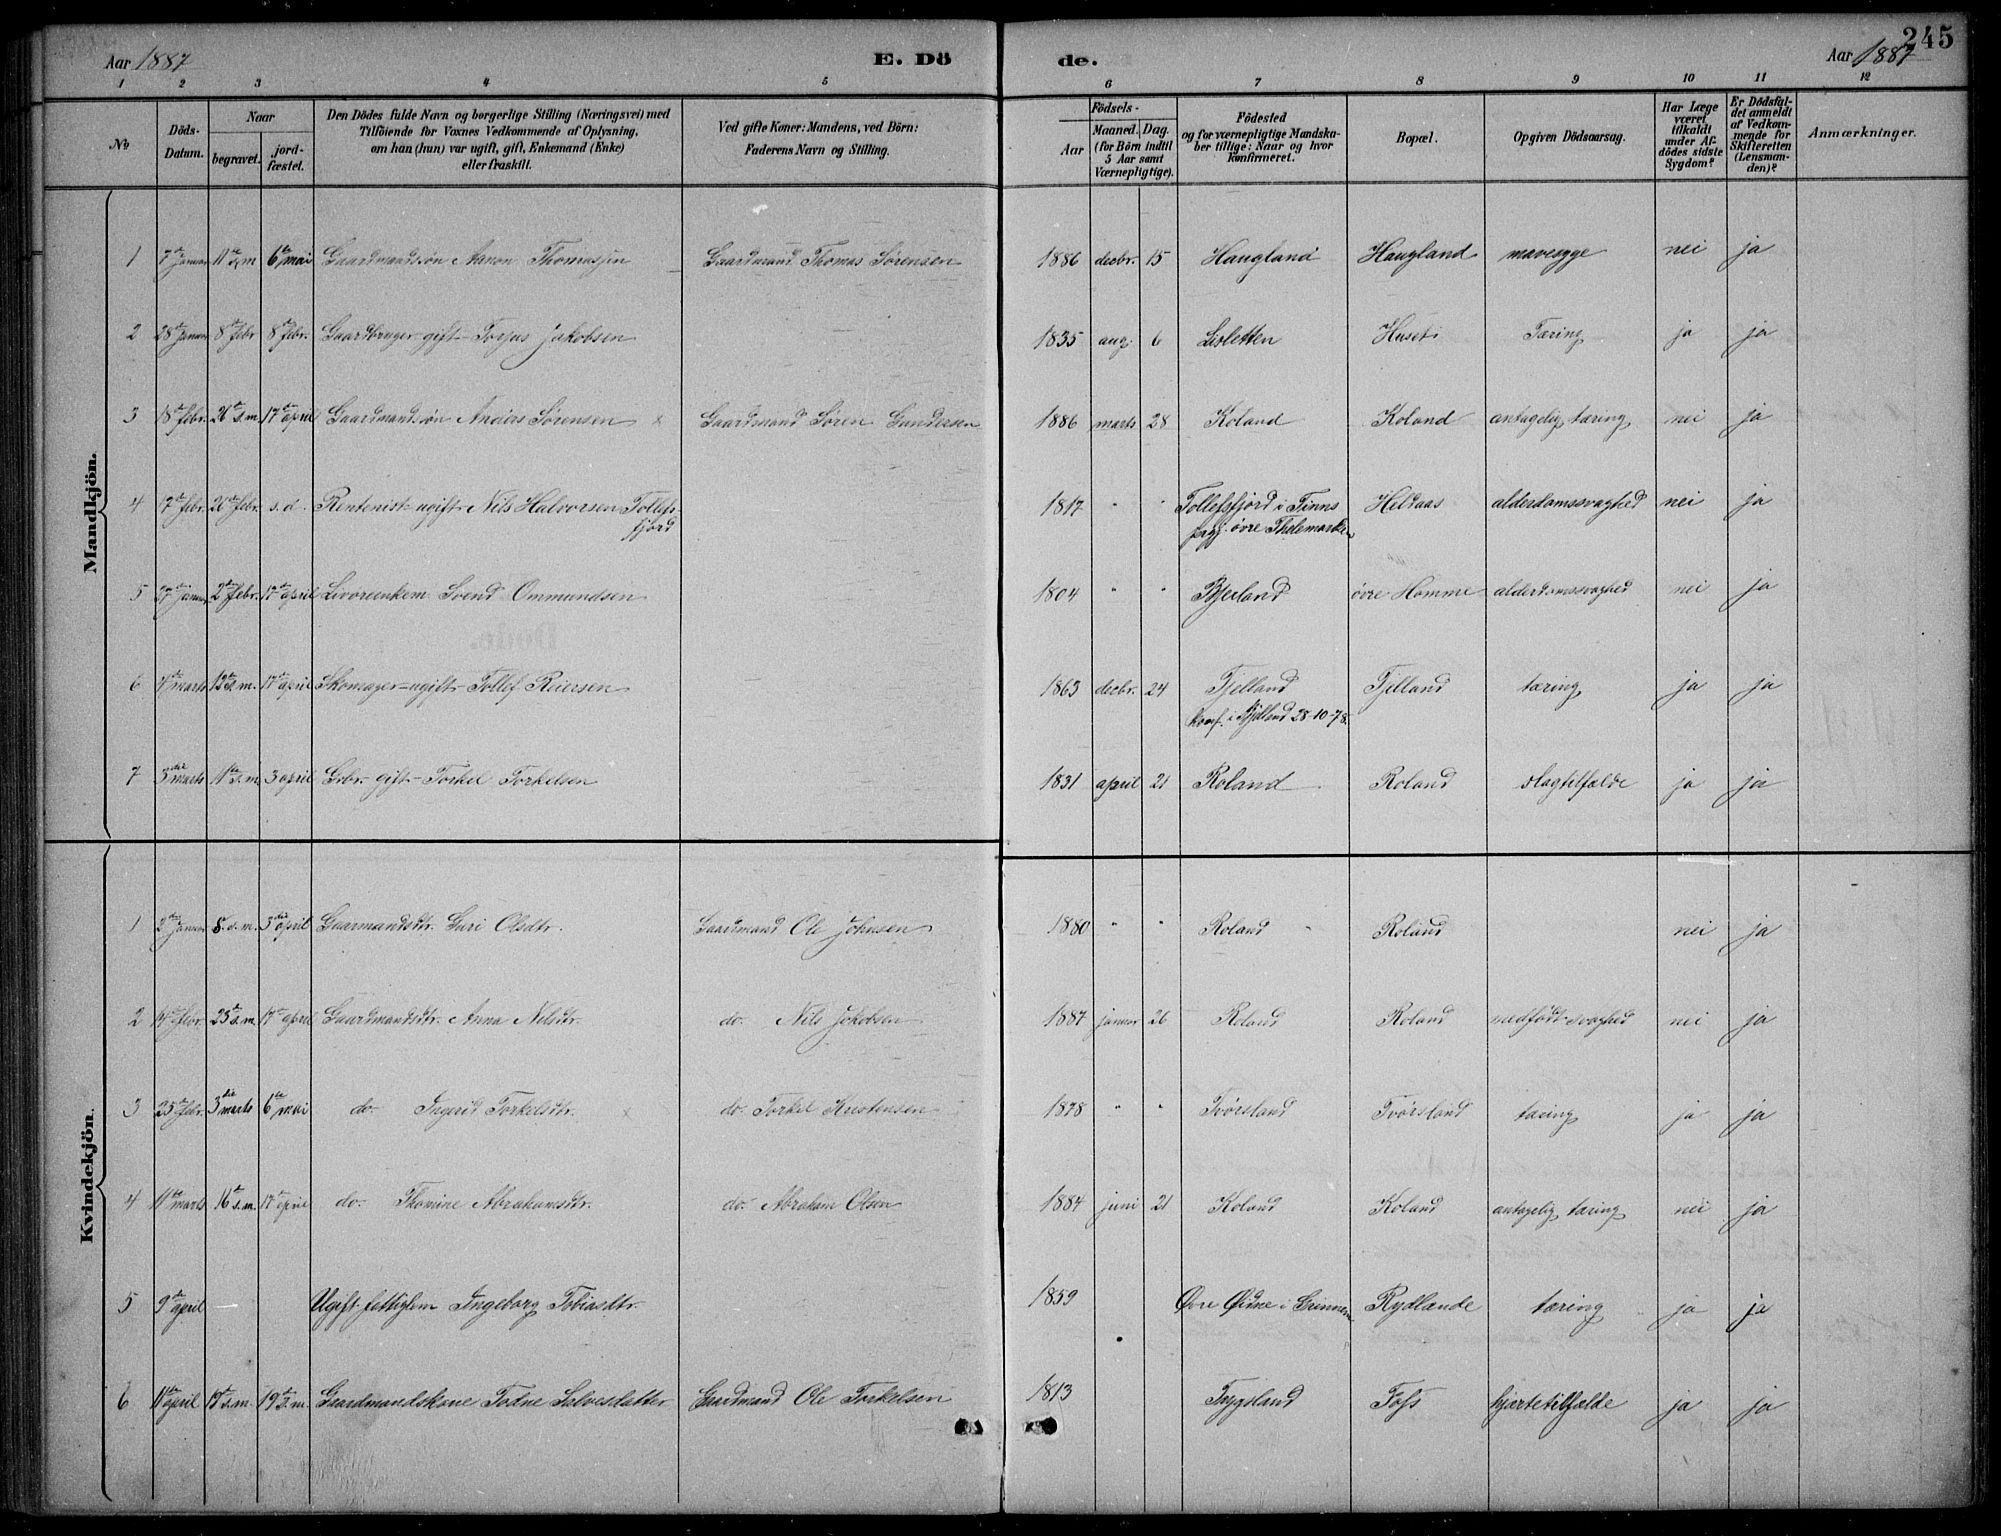 245
Aar 1887 E. Dö de. Aar 1887
1 2 3 4 5 6 7 8 9 10 11 12
No
Döds-Datum.
Naar
begravet. jordfæstet.
Den Dödes fulde Navn og borgerlige Stilling (Næringsvei) med
Tilföiende for Voxnes Vedkommende af Oplysning,
om han (hun) var ugift, gift, Enkemand (Enke)
eller fraskilt.
Ved gifte Koner: Mandens, ved Börn:
Faderens Navn og Stilling.
Födsels-
Aar
Maaned. Dag.
(for Börn indtil
5 Aar samt
Værnepligtige).
Födested
og for værnepligtige Mandska-
ber tillige: Naar og hvor
konfirmeret.
Bopæl.
Opgiven Dödsaarsag.
Har Læge
været
tilkaldt
under Af-
dödes sidste
Sygdom?
Er Dödsfal-
det anmeldt
af Vedkom-
mende for
Skifteretten
(Lensman-
den)?
Anmærkninger.
Mandkjön.
1 7de Januar 11te s.m. 6te mai Gaardmandssön Aanon Thomassen Gaardmand Thomas Sørensen 1886 decbr. 15 Haugland Haugland mavesyge nei ja
2 28de Januar 8de febr 8de febr. Gaardbruger gift Torjus Jakobsen 1835 aug. 6 Lisletten Huseti Tæring ja ja
3 18de febr. 26de s.m. 17de april Gaardmandssön Anders Sørensen x Gaardmand Søren Gundersen 1886 marts 28 Koland Koland antagelig tæring nei ja
4 17de febr. 26de febr. s.d. Rentenist ugift Nils Halvorsen Tollefs-
fjord 1817 " " Tollefsfjord i Tinns
prgj. øvre Thelemarken Heldaas alderdomssvaghed nei ja
5 27de januar 2den febr. 17de april Livöreenkem Svend Ommundsen 1804 " " Bjerland øvre Homme alderdomssvaghed nei ja
6 4de marts 12te s.m. 17de april Skomager ugift Tollef Reiersen 1863 decbr. 24 Tjelland
konf. i Bjelland 28-10-78. Tjelland tæring ja ja
7 3die marts 11te s.m. 3 april Grbr. gift Torkel Torkelsen 1831 april 21 Roland Roland slagtilfælde ja ja
Kvindekjön.
1 2den Januar 8. s.m. 3die april Gaarmandsdtr. Guri Olsdtr. Gaardmand Ole Johnsen 1880 " " Roland Roland nei ja
2 14de febr. 23de s.m. 17de april Gaardmandsdtr. Anna Nilsdtr. do. Nils Jakobsen 1887 januar 26 Roland Roland medfødt svaghed nei ja
3 25de febr. 3die marts 6te mai do. Ingerid Torkelsdtr. x do. Torkel Kristensen 1878 " " Tvörsland Tvörsland tæring ja ja
4 11te marts 16de s.m. 17de april do. Thomine Abrahamsdtr. do. Abraham Olsen 1884 juni 21 Koland Koland antagelig tæring nei ja
5 9de april Ugift fattiglem Ingeborg Tobiasdtr. 1859 Øvre Øidne i Grinnem Rydlande tæring ja ja
6 11te april 19de s.m. 19de s.m. Gaardmandskone Todne Salvesdatter Gaardmand Ole Torkelsen 1813 Trygsland Foss hjærtetilfælde ja ja